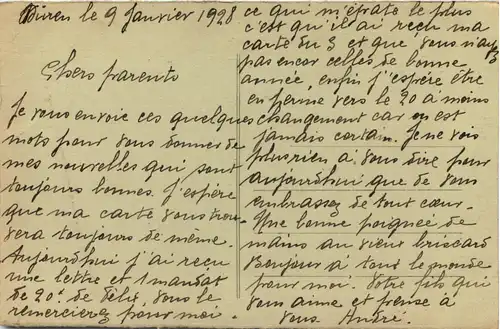 Düren le 9 Janvier 1928
Chers parents
Je vous envoie ces quelques
mots pour vous donner de
mes nouvelles qui sont
toujours bonnes. J'espère
que ma carte vous trou-
vera toujours de même.
Aujourd'hui j'ai reçu
une lettre et 1 mandat
de 20f. de Félix, vous le
remercierez pour moi.
ce qui m'épate le plus
c'est qu'il ai reçu ma
carte du 3 et que vous n'ayez
pas encor celles de bonne
année, enfin j'espère être
en ferme vers le 20 à moins
changement car on est
jamais certain. Je ne vois
plus rien à vous dire pour
aujourd'hui que de vous
embrassez de tout cœur.
Une bonne poignée de
mains au vieux briscard
Bonjour à tout le monde
pour moi. Votre fils qui
vous aime et pense à
vous André.